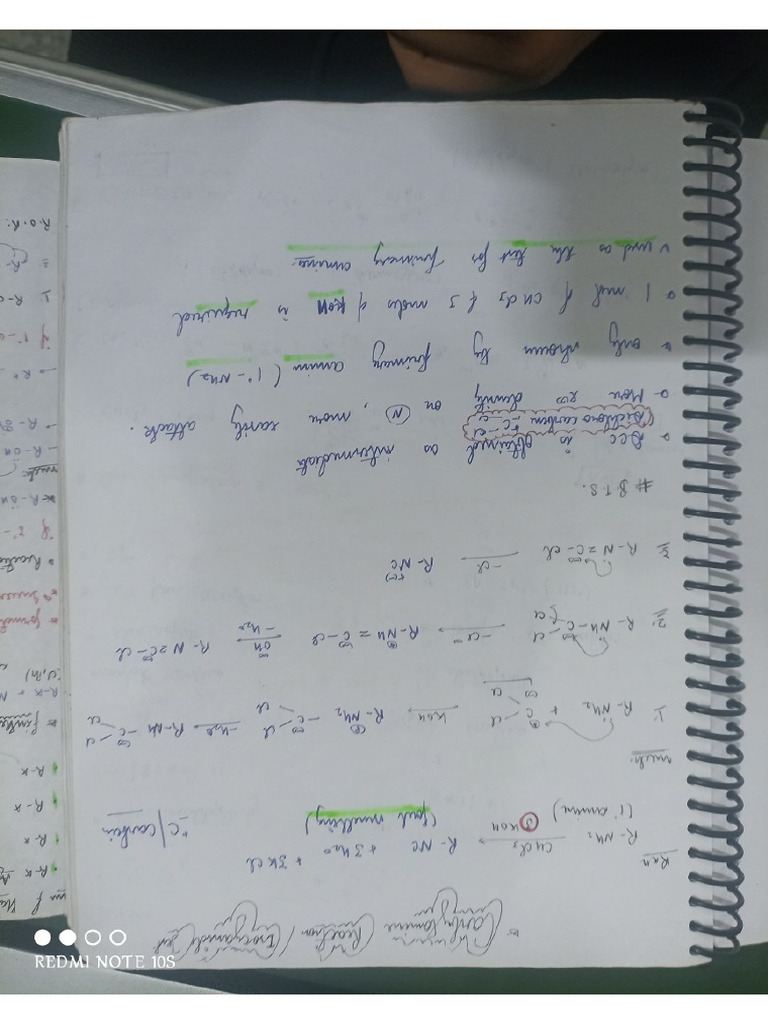 * Carbylamine Reaction / Isocyanide Test
Rxn
R-NH₂ CHCl₃ → R-NC + 3H₂O + 3KCl
(1° amine) 3KOH (foul smelling) :C/Carbin
mech:
1. R-NH₂ + :C Cl Cl KOH → R-NH₂-C Cl Cl -H₂O → R-NH-C Cl Cl
2. R-NH-C Cl Cl -Cl⁻ → R-NH=C-Cl OH -H₂O → R-N=C-Cl
3. R-N=C-Cl -Cl R-NC
# B.T.S.
• DCC is obtained as intermediate
(Dichloro carbin :C-Cl -Cl)
• More e⁻ density on N, more easily attack.
• only shown by primary amine (1°-NH₂)
• 1 mol of CHCl₃ & 3 moles of KOH is required
✓ used as the test for primary amine.
R-X
R-X
R-X
R-X
R-X + N
R-OH
R-O-R
REDMI NOTE 10S